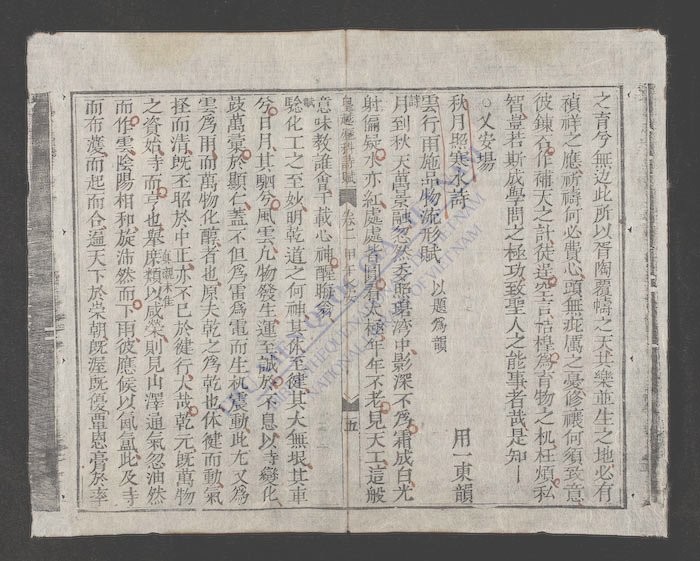 之育兮無边此所以胥陶覆幬之天共樂並生之地必有
禎祥之應祈禱何必費心頭無疵厲之憂修禳何須致意
彼鍊石作補天之計徒逞空言結楻為育物之机枉煩私
智豈若斯威學問之極功致聖人之能事者哉是知
○乂安場
秋月照寒水詩 用一東韻
雲行雨施品物流形賦 以題為韻
詩
月到秋天萬景融忽然委照碧湾中影深不為霜成白光
射偏疑水亦紅處處皆圓看太極年年不老見天工這般
皇越歷科詩賦 卷二 甲午科 五
意味教誰會千載心神醒晦翁
賦
驗化工之至妙明乾道之何神其体至健其大無垠其車
兮日月其駟兮風雲凢物發生運至誠於不息以時變化
鼓萬彙於顯仁盖不但為雷為電而生机震動此尢又為
雲為雨而萬物化醇者也原夫乾之為乾也体健而動氣
㧞而清既丕昭於中正亦不已於健行大哉乾元既萬物
之資始時而亨也舉庶類以咸榮則見山澤通氣忽油然
而作雲陰陽相和旋沛然而下雨彼應候以氤氲此及時
而布濩而起而合遍天下於崇朝既渥既優覃恩膏於率
THE TOP OF
NATIONAL LIBRARY OF VIETNAM